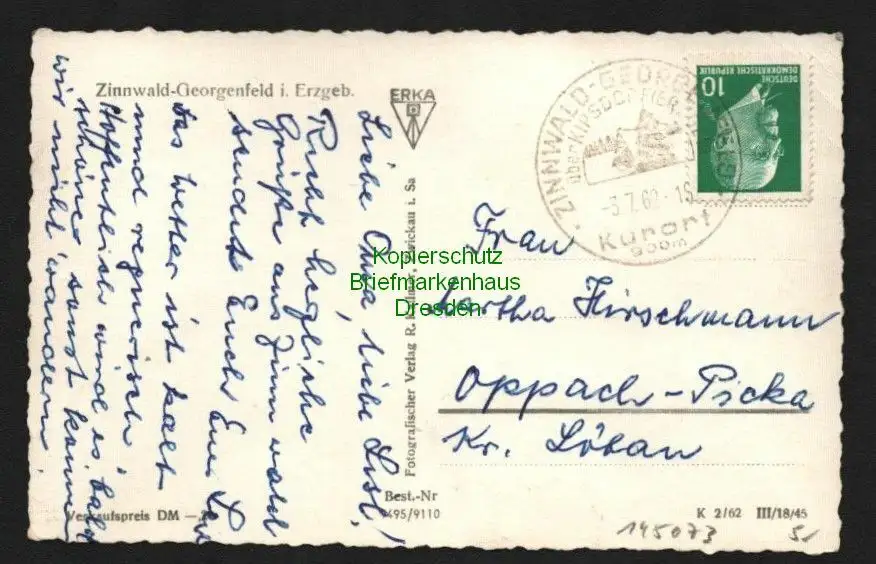 Zinnwald-Georgenfeld i. Erzgeb.
ERKA
Liebe Oma, liebe
Recht herzliche
Grüße aus Zinnwald
sendet Euch
Das Wetter ist kalt
und regnerisch.
Hoffentlich wird es bald
schöner, sonst können
wir nicht wandern.
Verkaufspreis DM
Fotografischer Verlag R. Zwickau i. Sa
Best.-Nr
9495/9110
DEUTSCHE
DEMOKRATISCHE REPUBLIK
10
ZINNWALD-GEORGENFELD
über KIPSDORF
Kurort
900m
Frau
Martha Hirschmann
Oppach-Picka
Kr. Löbau
K 2/62 III/18/45
145073
Kopierschutz
Briefmarkenhaus
Dresden